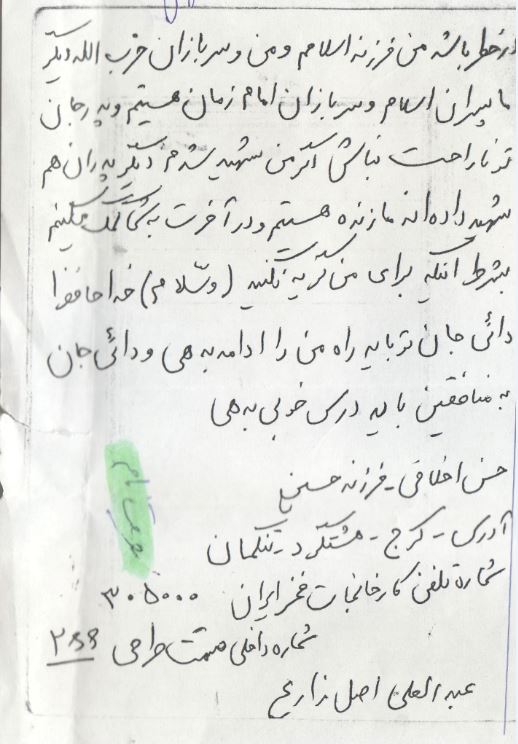 در خطر باشد من فرزند اسلامم و من و سربازان حزب الله دیگر
ما پسران اسلام و سربازان امام زمان هستیم و پدر جان
تو ناراحت نباش اگر من شهید شدم دیگر پدران هم
شهید داده اند ما زنده هستیم و در آخرت به شما کمک میکنیم
بشرط آنکه برای من گریه نکنید (وسّلام) خداحافظ
دائی جان تو باید راه من را ادامه بدهی و دائی جان
به منافقین باید درس خوبی بدهی
حسن اخلاقی - فرزند حسین
آدرس - کرج - هشتگرد - تنکمان
شماره تلفن کارخانجات فخر ایران ۳۰۵۰۰۰
شماره داخلی قسمت طراحی
عبدالعلی اصل زارع
وصیت نامه